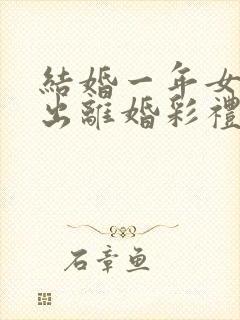 結婚一年女
出離婚彩禮
石章魚